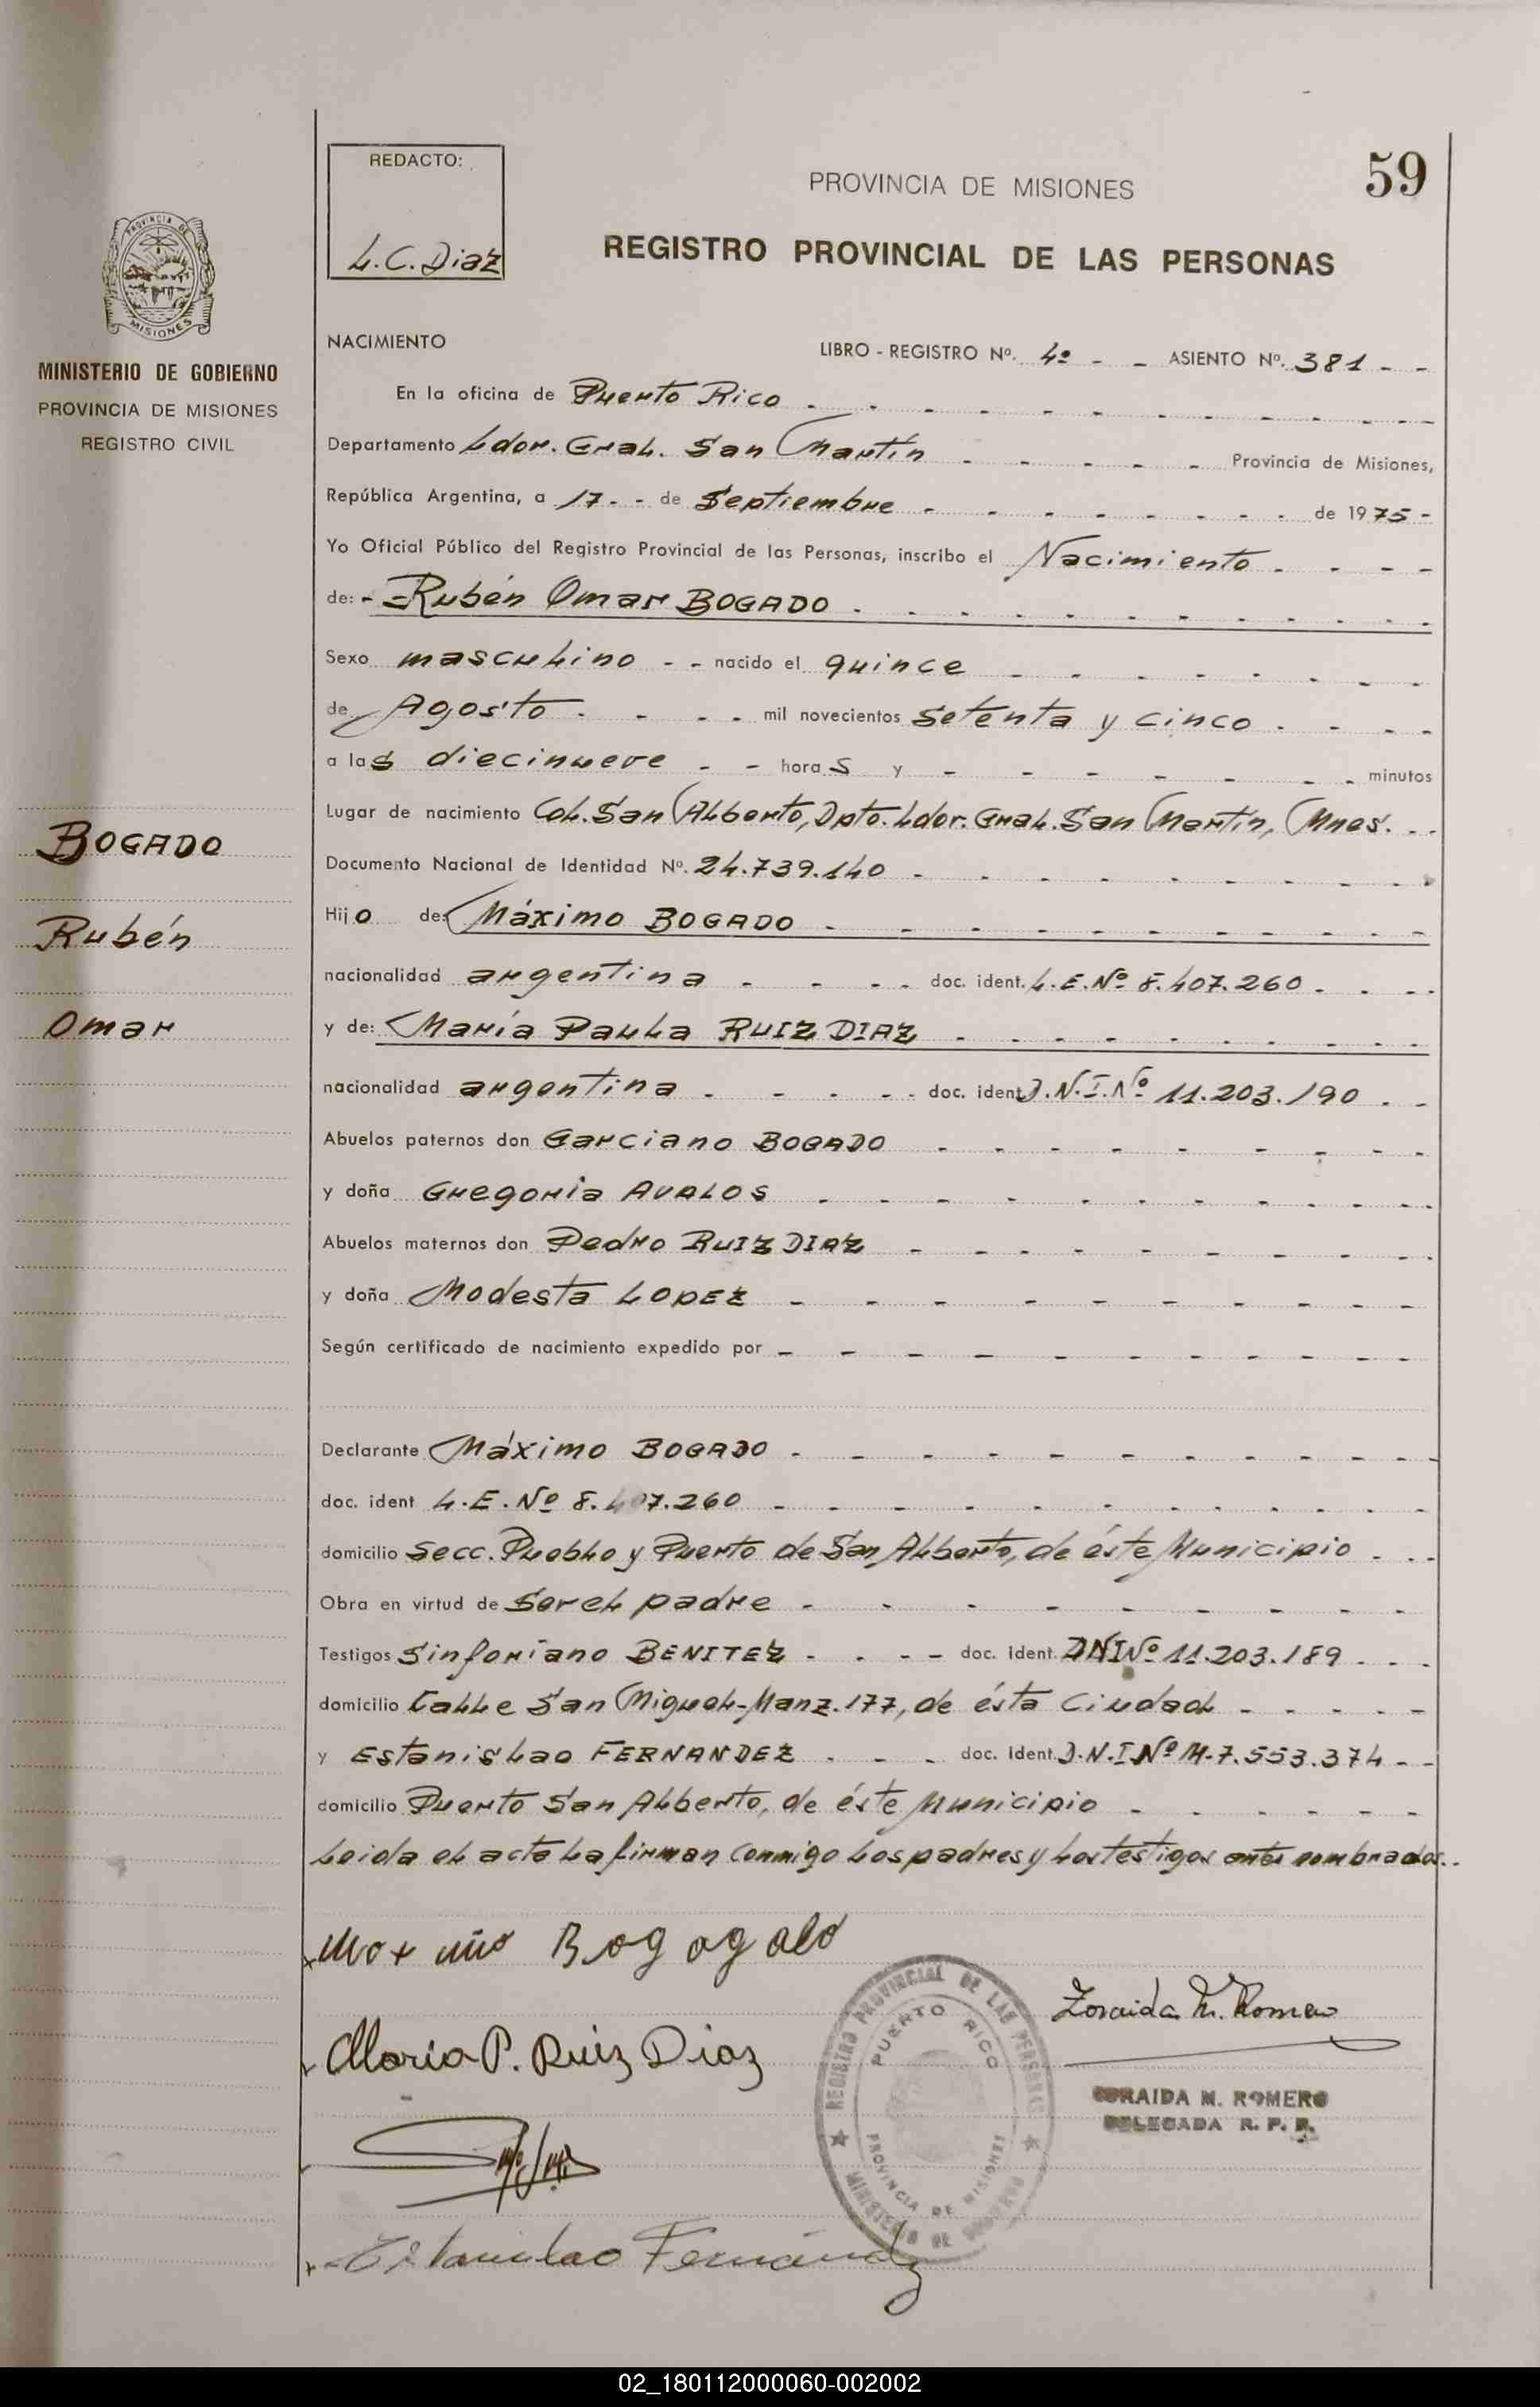 REDACTO:
L.C. Diaz
59
PROVINCIA DE MISIONES
REGISTRO PROVINCIAL DE LAS PERSONAS
PROVINCIA DE
MISIONES
MINISTERIO DE GOBIERNO
PROVINCIA DE MISIONES
REGISTRO CIVIL
NACIMIENTO
LIBRO - REGISTRO Nº. 4º - - ASIENTO Nº. 381 - -
En la oficina de Puerto Rico
Departamento Ldor. Gral. San Martín - - - - - Provincia de Misiones,
República Argentina, a 17 - - de Septiembre - - - - - - - - de 1975 -
Yo Oficial Público del Registro Provincial de las Personas, inscribo el Nacimiento - - - -
de: - =Rubén Omar BOGADO
Sexo masculino - - nacido el quince
de Agosto - - - - mil novecientos setenta y cinco - - - -
a las diecinueve - - horas y - - - - - - - minutos
Lugar de nacimiento Col. San Alberto, Dpto. Ldor. Gral. San Martín, Mnes. - -
BOGADO
Rubén
Omar
Documento Nacional de Identidad Nº. 24.739.140
Hijo de: Máximo BOGADO
nacionalidad argentina - - - - doc. ident. L.E.Nº 8.407.260 - - - -
y de: María Paula RUIZ DIAZ
nacionalidad argentina - - - - - doc. ident. D.N.I.Nº 11.203.190 - -
Abuelos paternos don Garciano BOGADO
y doña Gregoria AVALOS
Abuelos maternos don Pedro RUIZ DIAZ
y doña Modesta LOPEZ
Según certificado de nacimiento expedido por
Declarante Máximo BOGADO
doc. ident L.E.Nº 8.407.260
domicilio Secc. Pueblo y Puerto de San Alberto, de éste Municipio - - -
Obra en virtud de ser el padre
Testigos Sinforiano BENITEZ - - - - doc. ident. DNINº 11.203.189 - - -
domicilio Calle San Miguel-Manz. 177, de ésta Ciudad - - - - -
y Estanislao FERNANDEZ - - - doc. Ident. D.N.I.Nº M-7.553.374 - -
domicilio Puerto San Alberto, de éste Municipio - - - - - -
Leida el acta la firman conmigo los padres y los testigos antes nombrados. -
Bogagado
Maria P. Ruiz Diaz
Zoraida M. Romero
ZORAIDA M. ROMERO
DELEGADA R. P. P.
REGISTRO PROVINCIAL DE LAS PERSONAS
PUERTO RICO
PROVINCIA DE MISIONES
MINISTERIO DE GOBIERNO
Estanislao Fernández
02_180112000060-002002